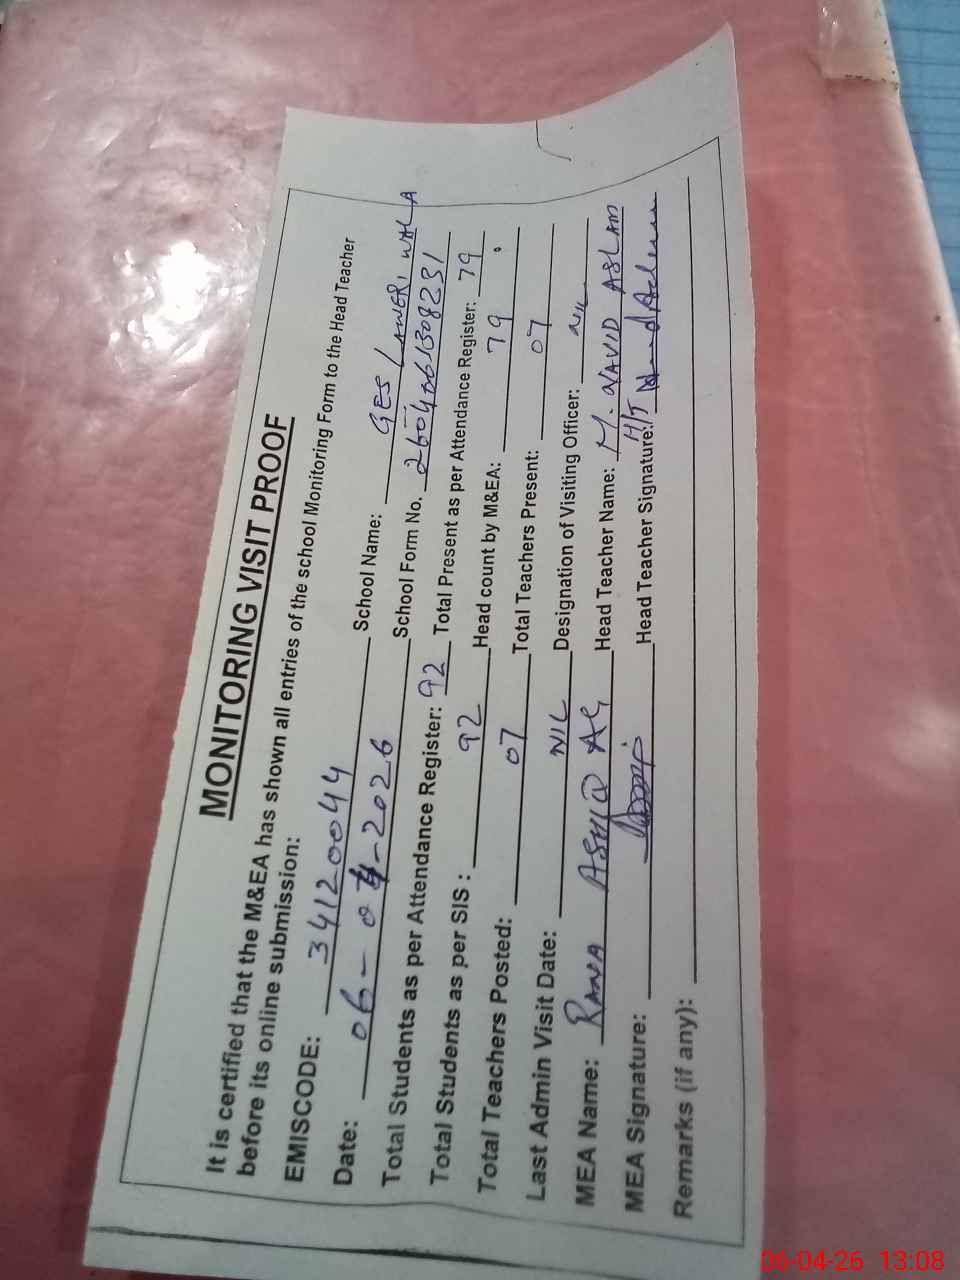 MONITORING VISIT PROOF
It is certified that the M&EA has shown all entries of the school Monitoring Form to the Head Teacher
before its online submission:
EMISCODE: 34120044 School Name: GES LAWERI WALA
Date: 06-04-2026 School Form No. 2604061308231
Total Students as per Attendance Register: 92 Total Present as per Attendance Register: 79
Total Students as per SIS: 92 Head count by M&EA: 79
Total Teachers Posted: 07 Total Teachers Present: 07
Last Admin Visit Date: NIL Designation of Visiting Officer: NIL
MEA Name: RANA Head Teacher Name: M. NAVID ASLAM
MEA Signature: Head Teacher Signature: H/T
Remarks (if any):
06-04-26 13:08